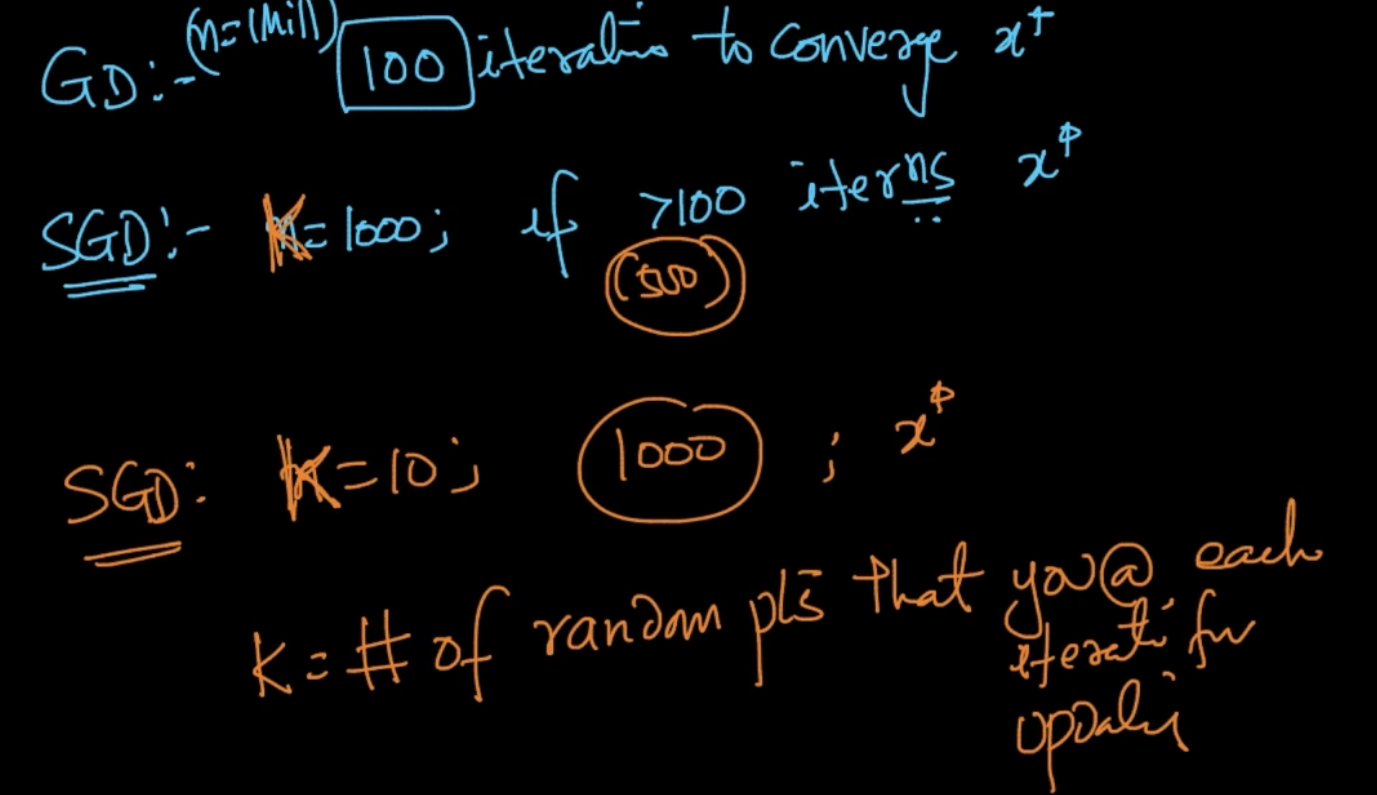 GD:- (n=1Mill) 100 iterations to converge x*
SGD:- K=1000; if >100 iterns x*
(500)
SGD: K=10; 1000 ; x*
K=# of random pts that you @ each
iterati for
updati